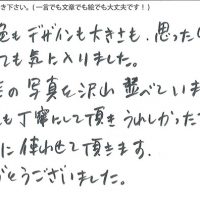 き下さい。(一言でも文章でも絵でも大丈夫です!)
色もデザインも大きさも、思った
ても気に入りました。
の写真を沢山並べていま
も丁寧にして頂きうれしかったで
に使わせて頂きます。
がとうございました。